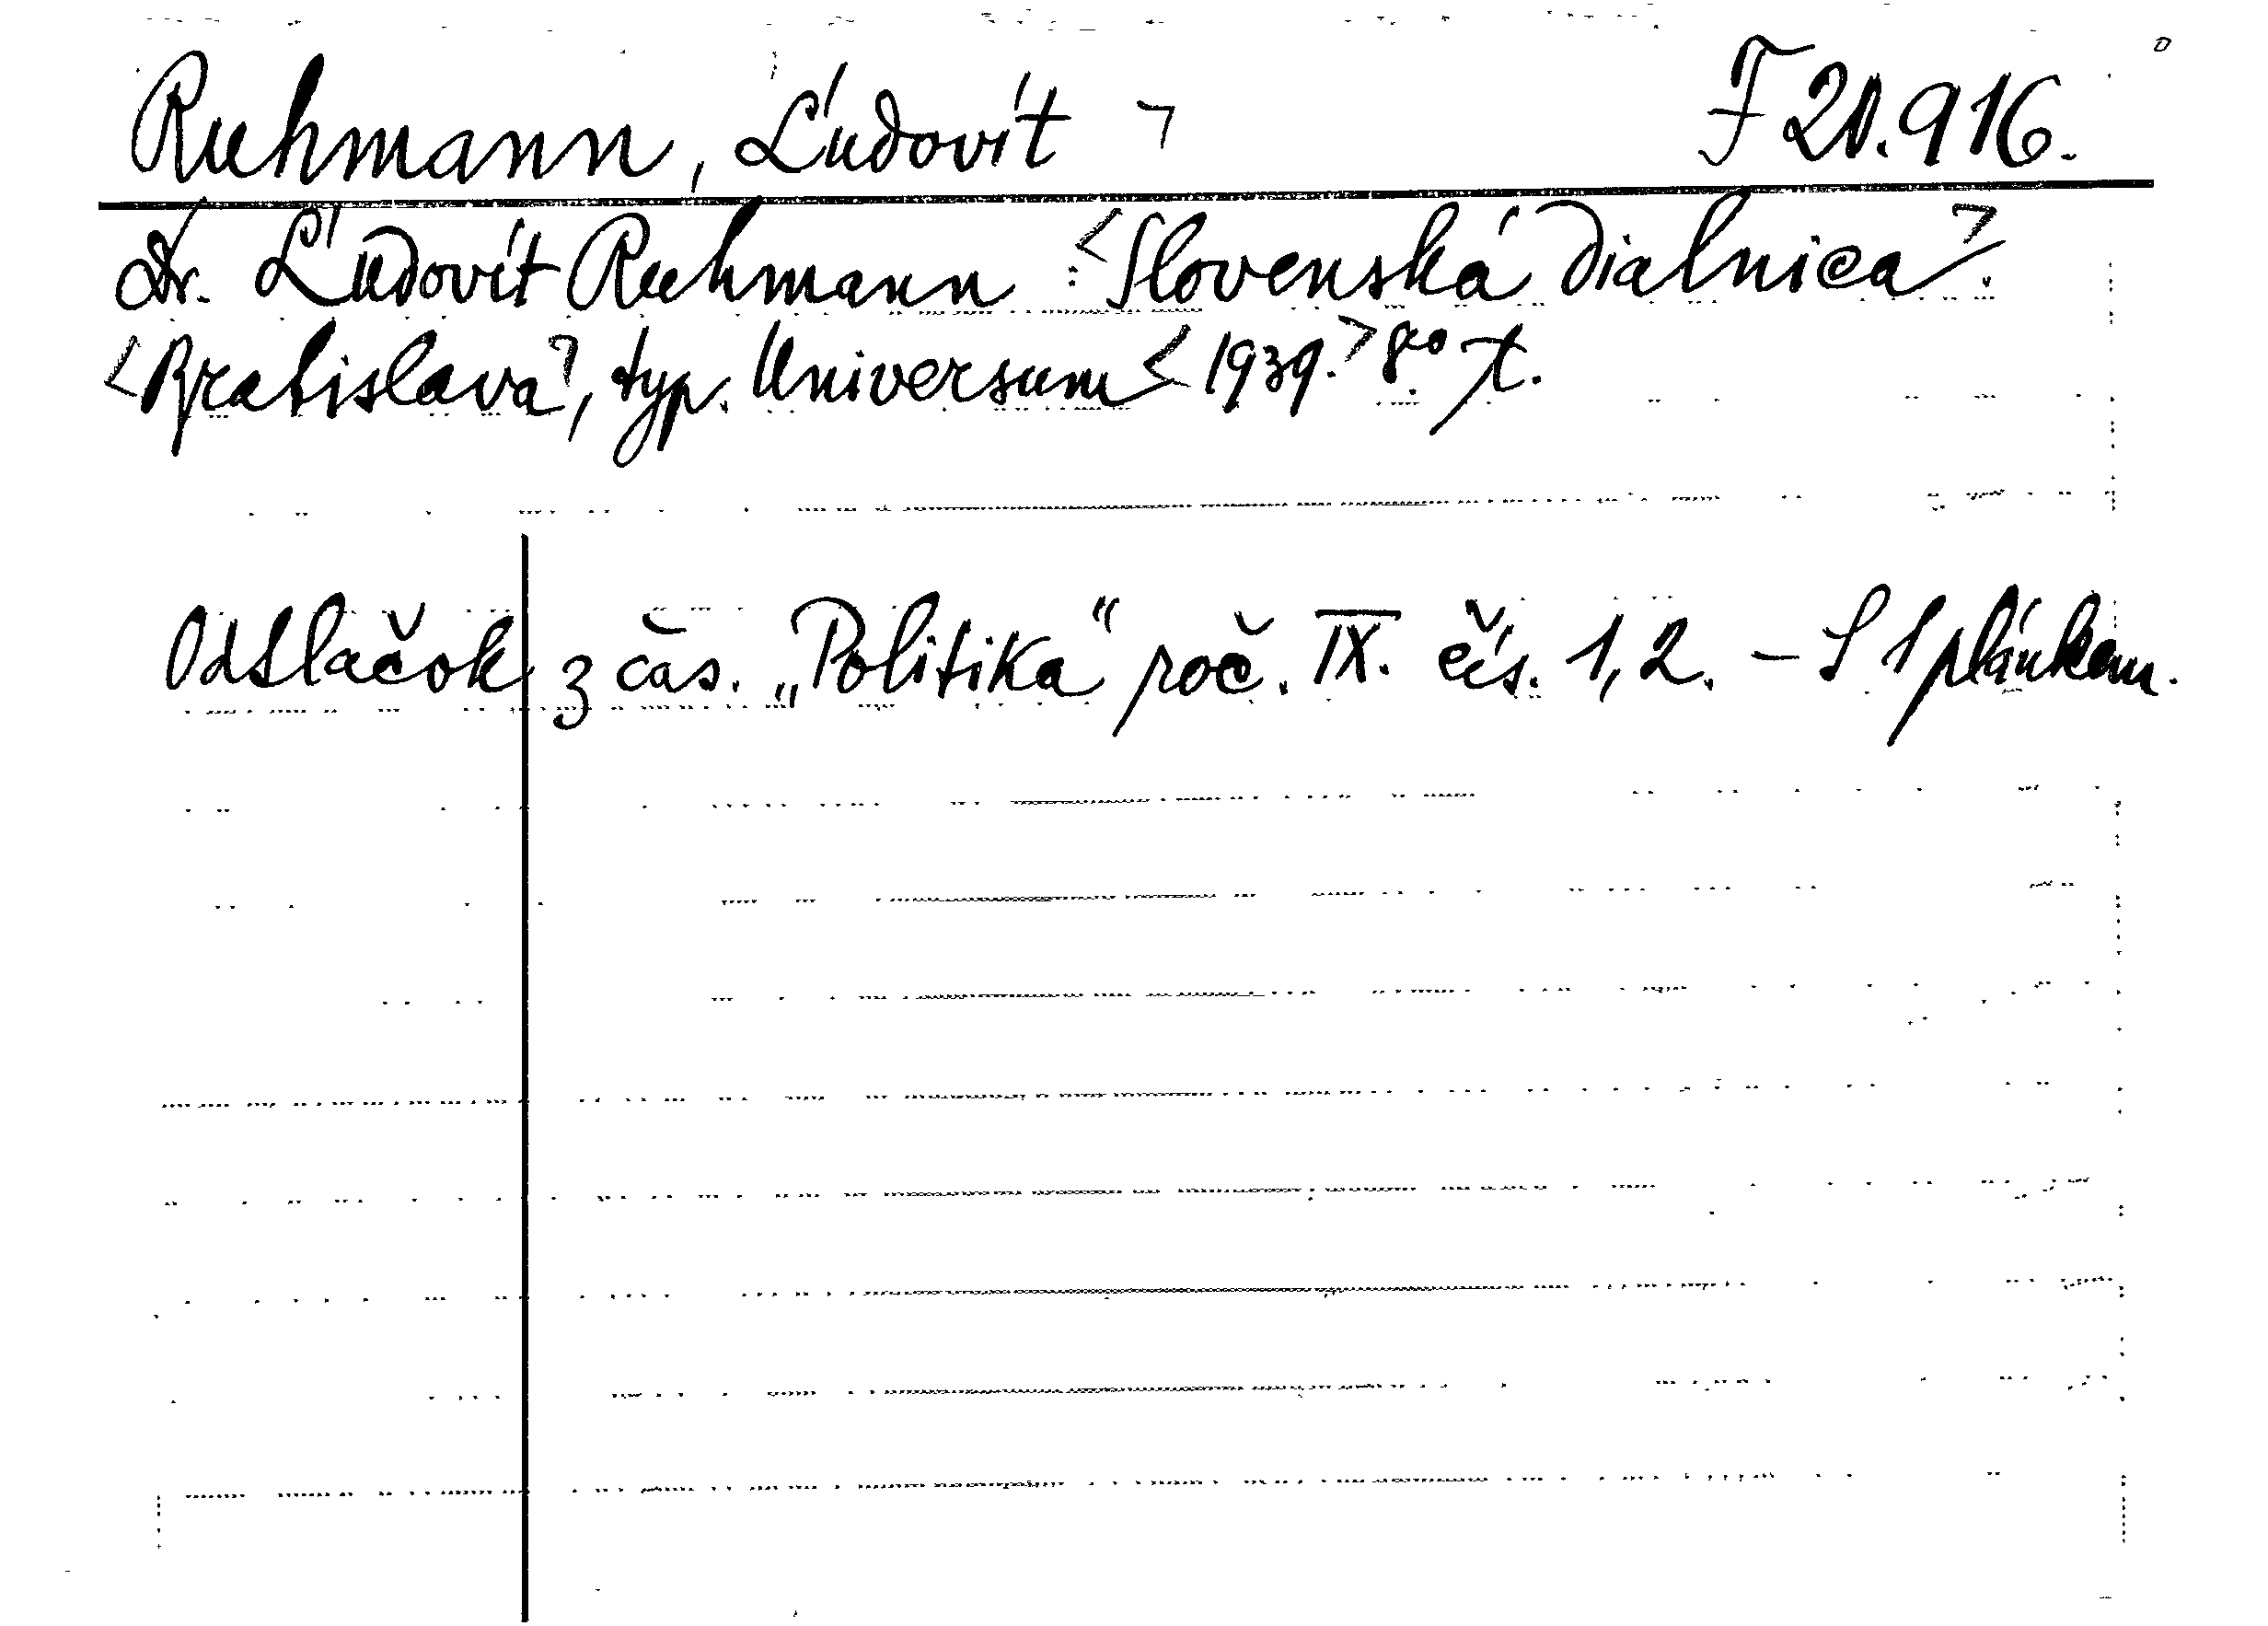 Ruhmann, Ľudovít ⌝ F 20.916.
Dr. Ľudovít Ruhmann : <Slovenská dialnica>.
<Bratislava>, typ. Universum <1939.> 8°
Odtlačok z čas. „Politika“ roč. IX. čís. 1, 2. – S 1 plánkem.